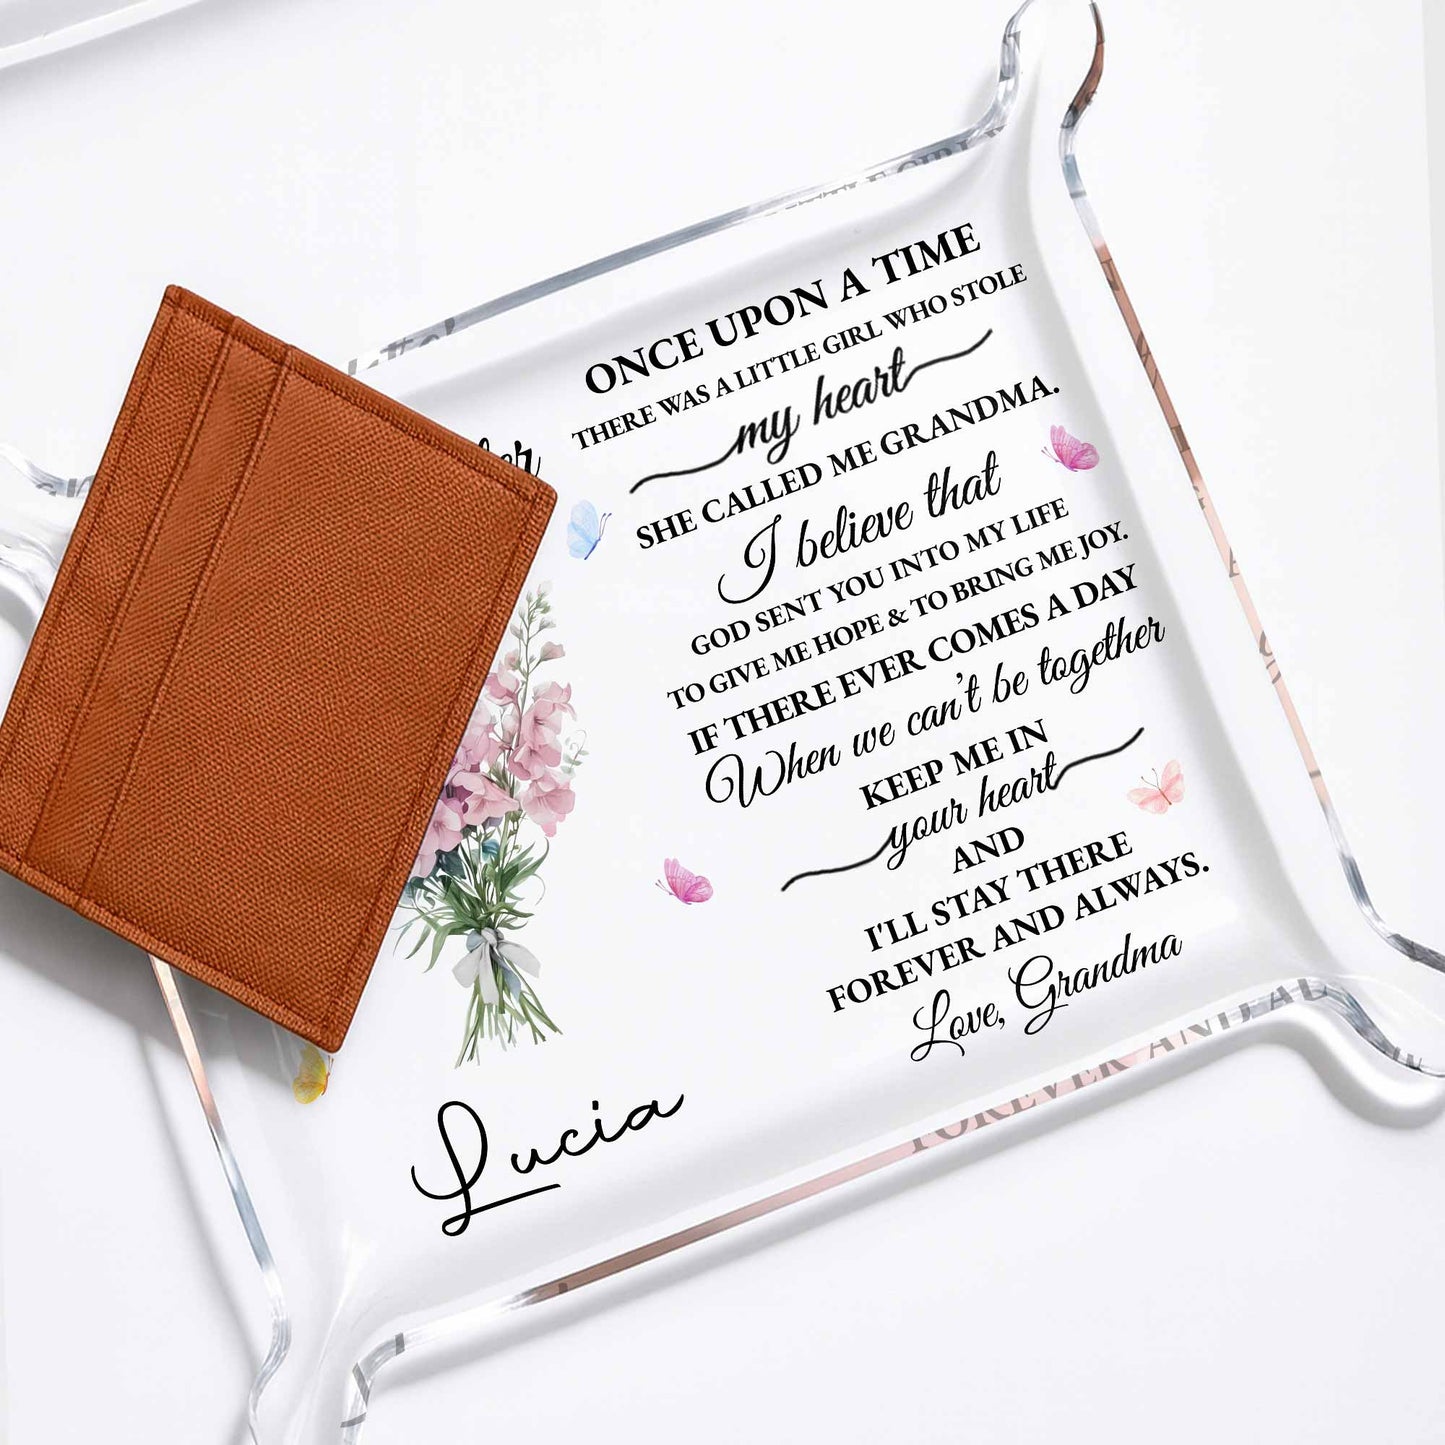 ONCE UPON A TIME
THERE WAS A LITTLE GIRL WHO STOLE
my heart
SHE CALLED ME GRANDMA.
I believe that
GOD SENT YOU INTO MY LIFE
TO GIVE ME HOPE & TO BRING ME JOY.
IF THERE EVER COMES A DAY
When we can't be together
KEEP ME IN
your heart
AND
I'LL STAY THERE
FOREVER AND ALWAYS.
Love, Grandma
Lucia